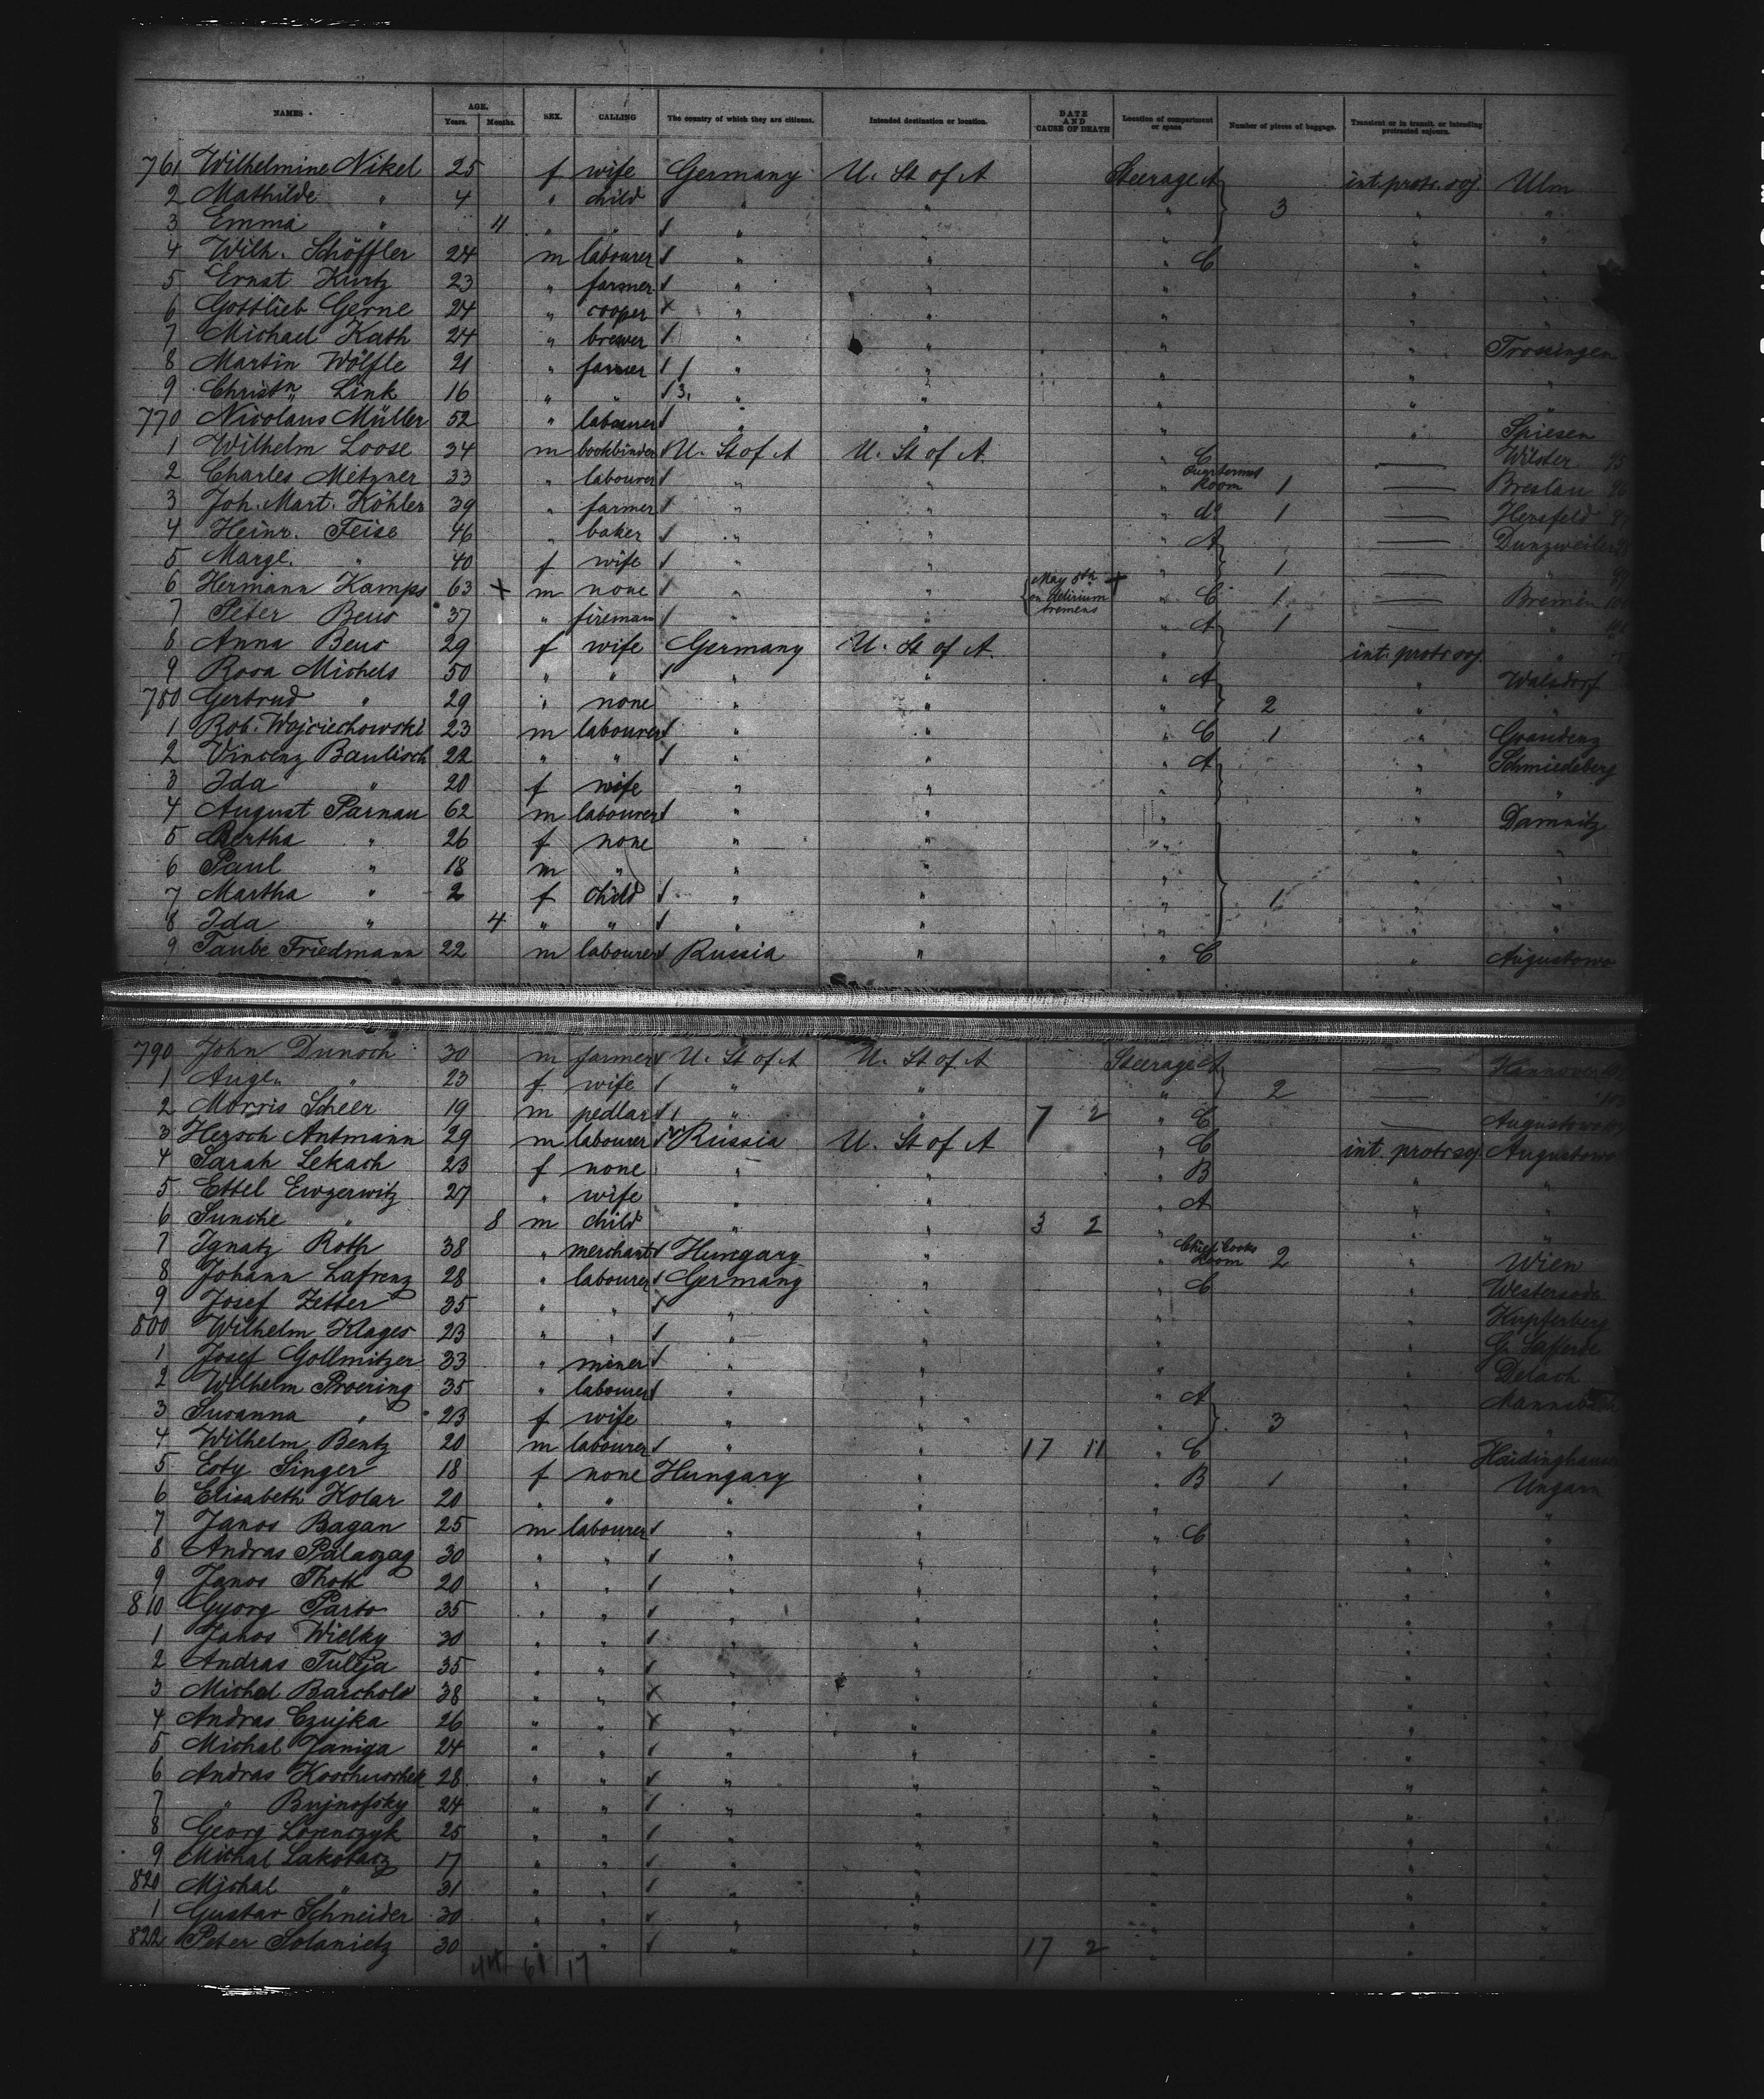 NAMES AGE. SEX. CALLING The country of which they are citizens. Intended destination or location. DATE AND CAUSE OF DEATH Location of compartment or space Number of pieces of baggage. Transient or in transit, or intending protracted sojourn.
Years. Months.
761 Wilhelmine Nikel 25 f wife Germany U. St of A Steerage A int. protr. soj. Ulm
2 Mathilde " 4 " child " " " 3 " "
3 Emma " 11 " " " " " " "
4 Wilh. Schöffler 24 m labourer " " " C "
5 Ernst Kurtz 23 " farmer " " " "
6 Gottlieb Gerne 24 " cooper " " " "
7 Michael Kath 24 " brewer " " " " Trossingen
8 Martin Wölfle 21 " farmer " " " " "
9 Christn Link 16 " " " " " " "
770 Nicolaus Müller 52 " labourer " " " " Spiesen
1 Wilhelm Loose 34 m bookbinder U. St of A U. St of A. " C — Wilster 95
2 Charles Metzner 33 " labourer " " " Room 1 — Breslau 96
3 Joh. Mart. Köhler 39 " farmer " " " do 1 — Hersfeld 97
4 Heinr. Feise 46 " baker " " " A — Dunzweiler
5 Margr. " 40 f wife " " " 1 — "
6 Hermann Kamps 63 + m none " " May 8th on delirium tremens + " C 1 — Bremen
7 Peter Beus 37 " fireman " " " A 1 — "
8 Anna Beus 29 f wife Germany U. St of A. " int. protr. soj. "
9 Rosa Michels 50 " " " " " A " Walsdorf
780 Gertrud " 29 " none " " " 2 " "
1 Rob. Wojciechowski 23 m labourer " " " C 1 " Graudenz
2 Vincenz Baulisch 22 " " " " " A " Schmiedeberg
3 Ida " 20 f wife " " " " "
4 August Parnau 62 m labourer " " " " Damnitz
5 Bertha " 26 f none " " " " "
6 Paul " 18 m " " " " " "
7 Martha " 2 f child " " " 1 " "
8 Ida " 4 " " " " " " "
9 Taube Friedmann 22 m labourer Russia " " C " Augustowo
790 John Dunoch 30 m farmer U. St of A U. St of A Steerage A — Hannover
1 Auge. " 23 f wife " " " 2 — "
2 Morris Scheer 19 m pedlar " " 7 2 " C — Augustowo
3 Hersch Antmann 29 m labourer Russia U. St of A " C int. protr soj Augustowo
4 Sarah Lekach 23 f none " " " B " "
5 Ettel 27 " wife " " " A " "
6 Sunche " 8 m child " " 3 2 " " "
7 Ignatz Roth 38 " merchant Hungary " " Chief Cooks Room 2 " Wien
8 Johann Lafrenz 28 " labourer Germany " " C "
9 Josef Zetter 35 " " " " " " Kupferberg
800 Wilhelm Klages 23 " " " " " " Gr. Lafferde
1 Josef Gollmitzer 33 " miner " " " " Delach
2 Wilhelm Proering 35 " labourer " " " A "
3 Susanna " 23 f wife " " " 3 " "
4 Wilhelm Bentz 20 m labourer " " 17 11 " C "
5 Esty Singer 18 f none Hungary " " B 1 " Ungarn
6 Elisabeth Kolar 20 " " " " " " "
7 Janos Bagan 25 m labourer " " " C " "
8 Andras 30 " " " " " " "
9 Janos Thott 20 " " " " " " "
810 Gyorg Parto 35 " " " " " " "
1 Janos Wielky 30 " " " " " " "
2 Andras Tuleja 35 " " " " " " "
3 Michal Barchold 38 " " " " " " "
4 Andras Czujka 26 " " " " " " "
5 Michal Janiga 24 " " " " " " "
6 Andras 28 " " " " " " "
7 " Bujnofsky 24 " " " " " " "
8 Georg Lorenczyk 25 " " " " " " "
9 Michal 17 " " " " " " "
820 Michal " 31 " " " " " " "
1 Gustav Schneider 30 " " " " " " "
822 Peter Solanietz 30 " " " " 17 2 " " "
61 17